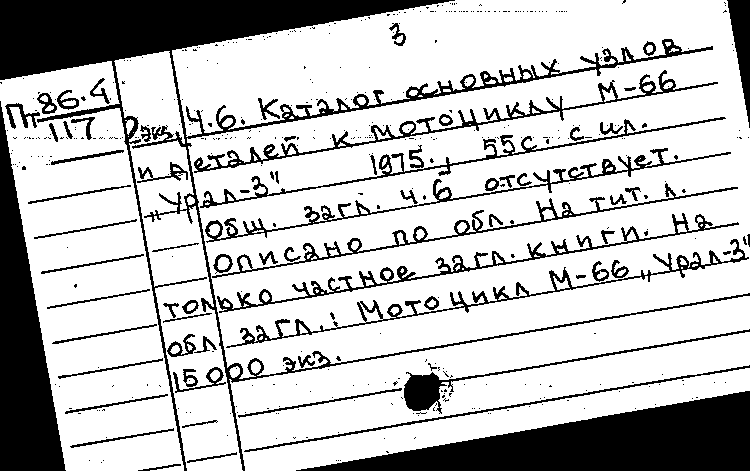 3
Пт 86.4
117
2 экз.
Ч.6. Каталог основных узлов
и деталей к мотоциклу М-66
„Урал-3". 1975., 55с. с ил.
Общ. загл. ч.6 отсутствует.
Описано по обл. На тит. л.
только частное загл. книги. На
обл. загл.: Мотоцикл М-66 „Урал-3"
15000 экз.